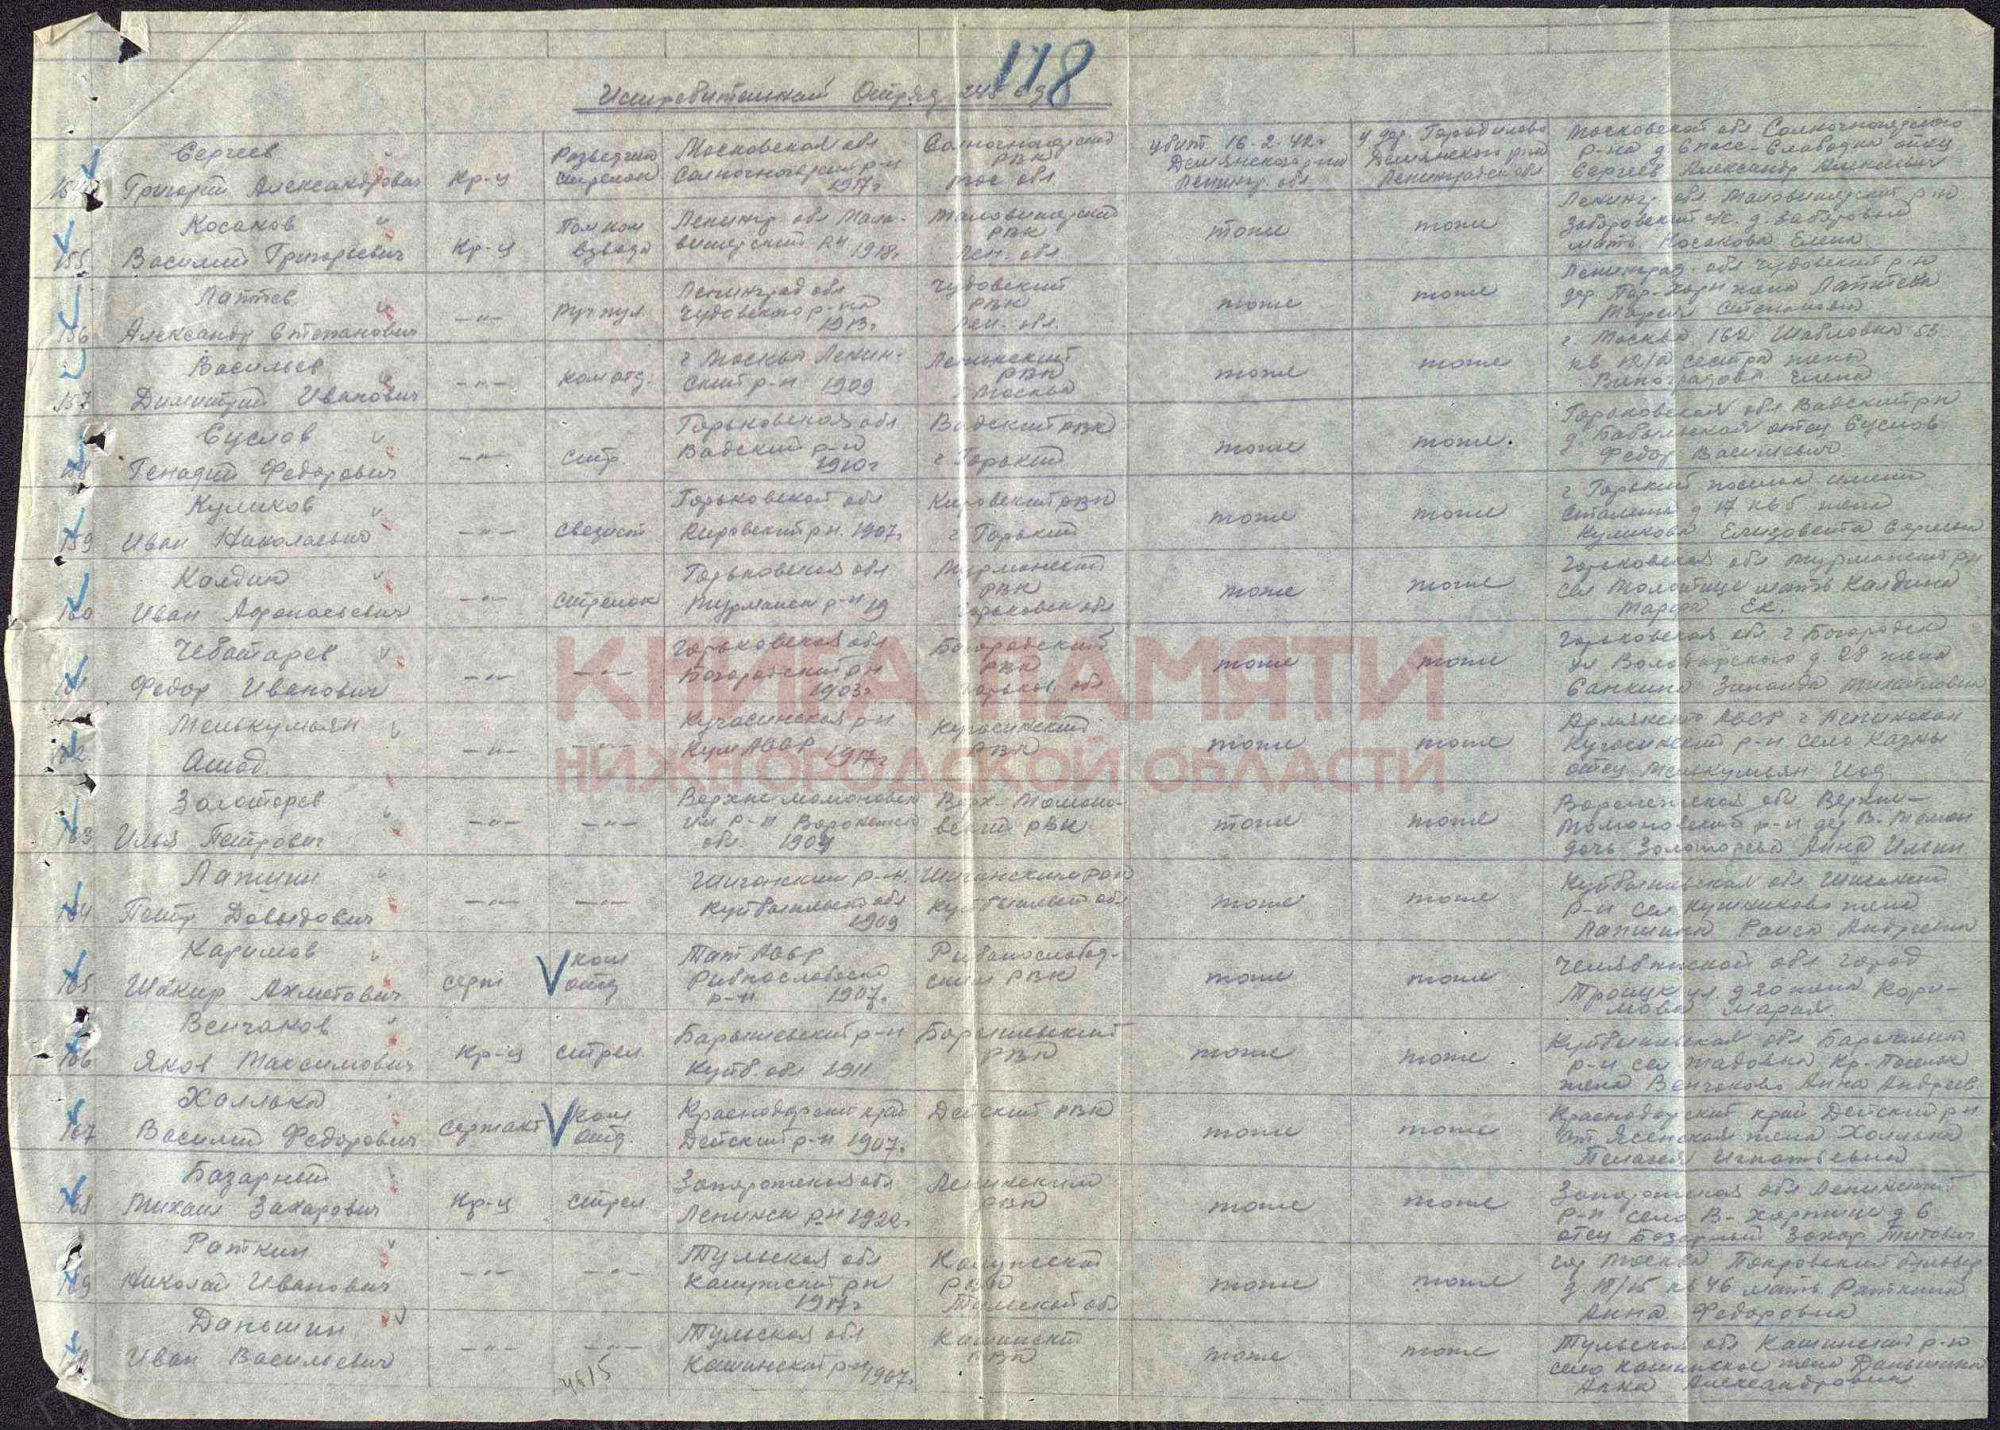 118
Истребительный Отряд 245 сд
154 Сергеев
Григорий Александрович
Кр-ц
Разведчик
стрелок
Московская обл
Солнечногорский р-н
1917г
Солнечногорский
РВК
Мос обл
убит 16-2-42г
Демянского р-на
Ленингр. обл
у дер. Городилово
Демянского р-на
Ленинградск обл
Московской обл Солнечногорского
р-на д Спасс-Слободка отец
Сергеев Александр Алексеевич
155 Косаков
Василий Григорьевич
Кр-ц
Пом ком
взвода
Ленингр обл Мало-
вишерский РН
1918г
Маловишерский
РВК
Лен. обл.
тоже
тоже
Ленингр. обл Маловишерский р-н
мать Косакова Елена
156 Лаптев
Александр Степанович
-"-
руч пул.
Ленинград обл
Чудовского р-на
1913г
Чудовский
РВК
Лен. обл.
тоже
тоже
Ленинград. обл Чудовский р-н
дер жена Лаптева
Мария Степановна
157 Васильев
Димитрий Иванович
-"-
ком отд.
г Москва Ленин-
ский р-н 1909
Ленинский
РВК
г Москва
тоже
тоже
г Москва 162 Шаболовка 53
кв 12/а сестра жены
Виноградова Елена
158 Суслов
Генадий Федорович
-"-
стр
Горьковская обл
Вадский р-н
1910г
Вадский РВК
г Горький
тоже
тоже.
Горьковская обл Вадский рн
д. отец Суслов
Федор Васильевич
159 Куликов
Иван Николаевич
-"-
связист
Горьковской обл
Кировский рн. 1907г
Кировский РВК
г Горький
тоже
тоже
г Горький поселок имени
Сталина д 17 кв 5 жена
Куликова Елизовета Сергеевна
160 Калдин
Иван Афонасьевич
-"-
стрелок
Горьковская обл
р-н 19
РВК
Горьковск обл
тоже
тоже
Горьковская обл
сел мать Калдина
Мария Ек.
161 Чеботарев
Федор Иванович
-"-
-"-
Горьковская обл
Богородский рн
1903г
Богородский
РВК
Горьков. обл
тоже
тоже
Горьковская обл г Богородск
ул Володарского д. 28 жена
Санкина Зинаида Михайловна
КНИГА ПАМЯТИ
НИЖЕГОРОДСКОЙ ОБЛАСТИ
162 Мелькумьян
Ашод
-"-
-"-
р-н
1917г
РВК
тоже
тоже
г Ленинокан
р-н село
отец Мелкумьян
163 Золоторев
Илья Петрович
-"-
-"-
р-н Воронежск
обл 1904
Верх-Мамоно-
вский РВК
тоже
тоже
Воронежская обл Верхне-
Мамоновский р-н дер В-Мамон
дочь Золоторева Анна Ильин.
164 Лапшин
Петр Довыдович
-"-
-"-
Шигонский р-н.
Куйбышевск обл
1909
Шигонский РВК
Куйбышевск обл
тоже
тоже
Куйбышевская обл Шигонский
р-н сел Кушниково жена
Лапшина Раиса Андреевна
165 Каримов
Шакир Ахметович
серж
ком
отд
Тат АССР
р-н 1907г.
Рыбнослобод-
ский РВК
тоже
тоже
Челябинской обл город
Троицк ул. д 20 жена Кари-
мова Марая
166 Венчаков
Яков Максимович
Кр-ц
стрел.
Барышевский р-н
Куйб. обл 1911
Барышевский
РВК
тоже
тоже
Куйбышевская обл Барышский
р-н сел Жадовка
жена Венчакова Анна Андреев
167 Халявка
Василий Федорович
сержант
ком
отд.
Краснодарский край
Дейский р-н 1907г.
Дейский РВК
тоже
тоже
Краснодарский край Дейский рн
ст Ясенская жена
Пелагея Игнатьевна
168 Базарный
Михаил Захарович
Кр-ц
стрел
Запорожская обл
Ленинск р-н 1922г
Ленинский
РВК
тоже
тоже
Запорожская обл Ленинский
р-н село В-Хортица д 6
отец Базарный Захар Титович
169 Раткин
Николай Иванович
-"-
-"-
Тульская обл
Калужский рн
1917г
Калужский
РВК
Тульской обл
тоже
тоже
гор Москва Покровский бульвар
д 18/15 кв 46 мать Раткина
Анна Федоровна
170 Даньшин
Иван Васильевич
-"-
-"-
4815
Тульская обл
р-н 1907г.
РВК
тоже
тоже
Тульская обл р-н
село жена Даньшина
Анна Александровна